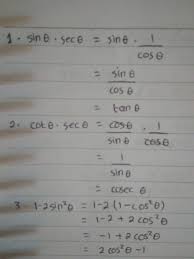 1. sin θ . sec θ = sin θ . 1/cos θ
= sin θ / cos θ
= tan θ
2. cot θ . sec θ = cos θ/sin θ . 1/cos θ
= 1/sin θ
= cosec θ
3. 1-2sin²θ = 1-2(1-cos²θ)
= 1-2+2cos²θ
= -1+2cos²θ
= 2cos²θ-1